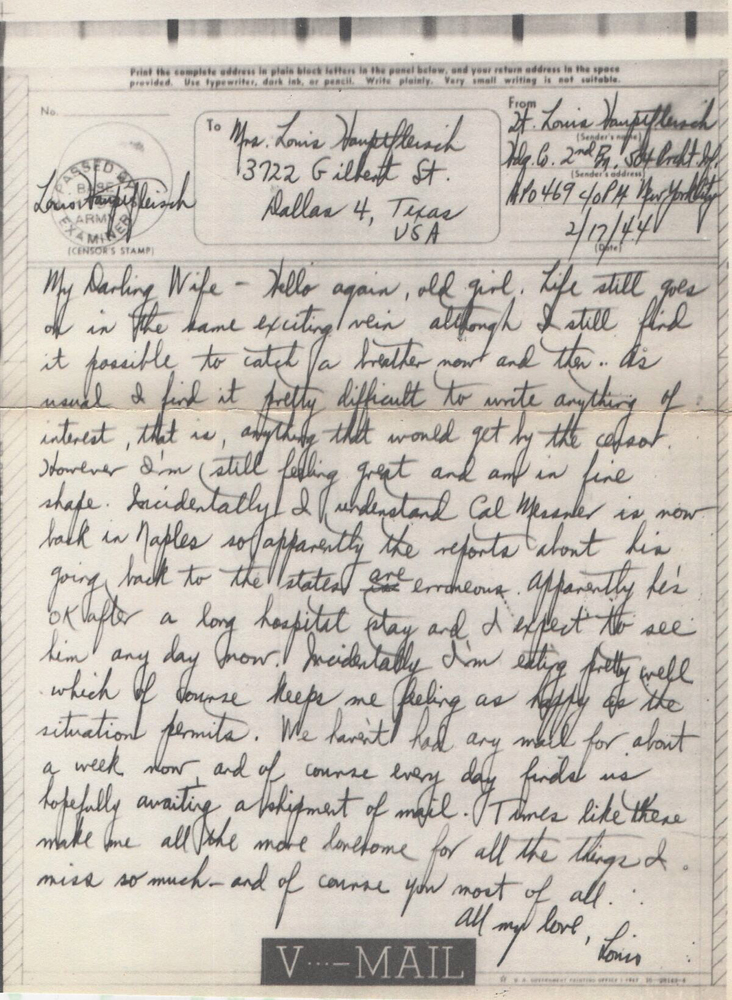 Print the complete address in plain block letters in the panel below, and your return address in the space
provided. Use typewriter, dark ink, or pencil. Write plainly. Very small writing is not suitable.
No.
PASSED BY
BASE
ARMY
EXAMINER
(CENSOR'S STAMP)
Louis Hauptfleisch
To
Mrs. Louis Hauptfleisch
3722 Gilbert St.
Dallas 4, Texas
USA
From
Lt. Louis Hauptfleisch
(Sender's name)
Hdq. Co. 2nd Bn. 504 Prcht. Inf.
(Sender's address)
APO 469 c/o PM New York City
2/17/44
(Date)
My Darling Wife - Hello again, old girl. Life still goes
on in the same exciting vein although I still find
it possible to catch a breather now and then.. As
usual I find it pretty difficult to write anything of
interest, that is, anything that would get by the censor.
However I'm still feeling great and am in fine
shape. Incidentally I understand Cal Messner is now
back in Naples so apparently the reports about his
going back to the states are erroneous. Apparently he's
OK after a long hospital stay and I expect to see
him any day now. Incidentally I'm eating pretty well
which of course keeps me feeling as happy as the
situation permits. We haven't had any mail for about
a week now, and of course every day finds us
hopefully awaiting a shipment of mail. Times like these
make me all the more lonesome for all the things I
miss so much - and of course you most of all.
All my love,
Louis
V···—MAIL